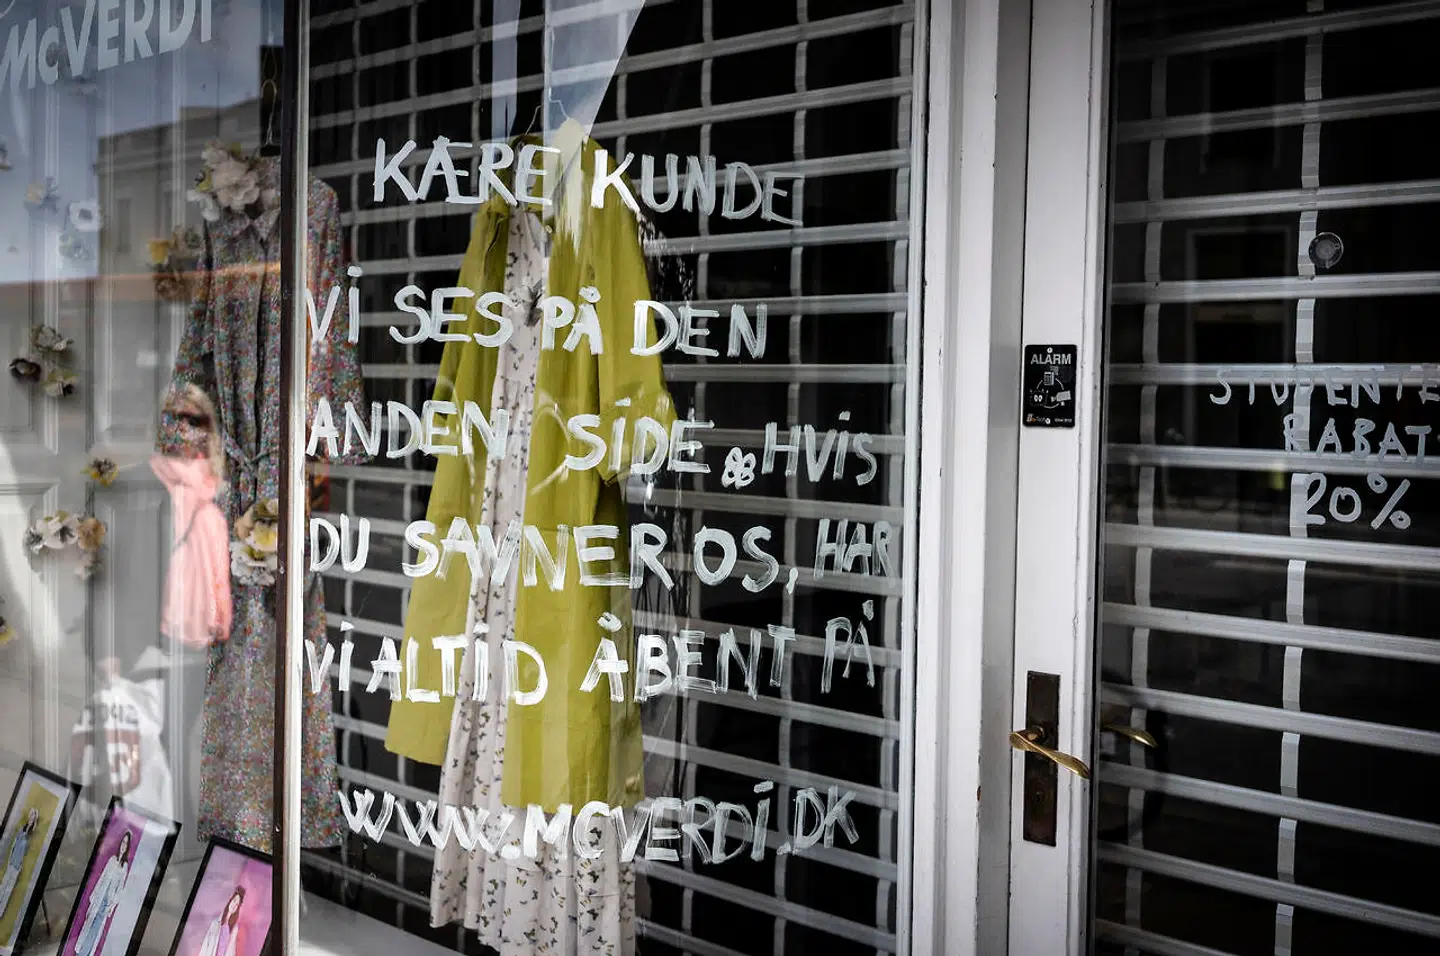 McVERDI
KÆRE KUNDE
Vi SES PÅ DEN
ANDEN SiDE HViS
DU SAVNER OS, HAR
Vi ALTiD ÅBENT PÅ
WWW.MCVERDi.DK
ALARM
STUDENTE
RABAT
20%